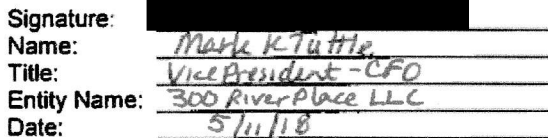 Signature:
Name: Mark K Tuttle
Title: Vice President - CFO
Entity Name: 300 River Place LLC
Date: 5/11/18